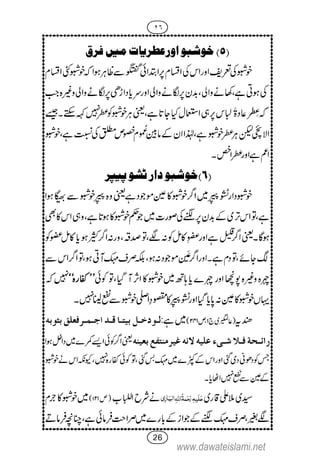 ۲٦
(٥) خوشبو اور عطریات میں فرق
خوشبو کی تعریف اور اس کی اقسام پر ابتدائی گفتگو سے ظاہر ہوا کہ خوشبو کئی اقسام
کی ہوتی ہے، کھانے والی، بدن پر لگانے والی اور سر یا داڑھی پر لگانے والی وغیرہ جبکہ
عطر عادۃً لباس پر ہی استعمال کیا جاتا ہے، یعنی ہر خوشبو کو عطر نہیں کہہ سکتے۔ جیسے
الائچی لیکن ہر عطر خوشبو ہے، لہٰذا ان کے مابین عموم خصوص مطلق کی نسبت ہے، خوشبو
اعم ہے اور عطر اخص۔
(٦) خوشبو دار ٹشو پیپر
خوشبودار ٹشو پیپر میں اگر خوشبو کا عین موجود ہے یعنی وہ پیپر خوشبو سے بھیگا ہوا
ہے، تو اس تری کے بدن پر لگنے کی صورت میں جو حکم خوشبو کا ہوتا ہے، وہی اس کا بھی
ہوگا۔ یعنی اگر قلیل ہے اور عضوِ کامل کو نہ لگے، تو صدقہ، ورنہ اگر کثیر ہو یا کامل عضو کو
لگ جائے، تو دم ہے۔ اور اگر عین موجود نہ ہو، بلکہ صرف مہک آتی ہو، تو اگر اس سے
چہرہ وغیرہ پونچھا اور چہرے یا ہاتھ میں خوشبو کا اثر آ گیا، تو کوئی ’’کفارہ‘‘ نہیں کہ
یہاں خوشبو کا عین نہ پایا گیا اور ٹشو پیپر کا مقصودِ اصلی خوشبو سے نفع لینا نہیں۔
ہندیہ (عالمگیری ج۱ ص۲۴۱) میں ہے: لـو دخـل بيتـا قـد اجـمـر فعلق بثوبه
رائـحة فـلا شـيء عليه لانه غير منتفع بعينه یعنی اگر کوئی ایسے کمرے میں داخل ہوا
جس کو دھونی دی گئی اور اس کے کپڑے میں مہک بس گئی، تو کوئی کفارہ نہیں، کیونکہ اس نے خوشبو
کے عین سے نفع نہیں اٹھایا۔
سیدی ملا علی قاری عَلَيْهِ رَحْمَةُ اللهِ الْبَارِى نے شرح اللباب (ص۱۲۱) میں خوشبو کا جرم
بغیر لگے، صرف مہک لگنے کے جواز کے بارے میں صراحت فرمائی ہے، چنانچہ فرماتے
26
www.dawateislami.net